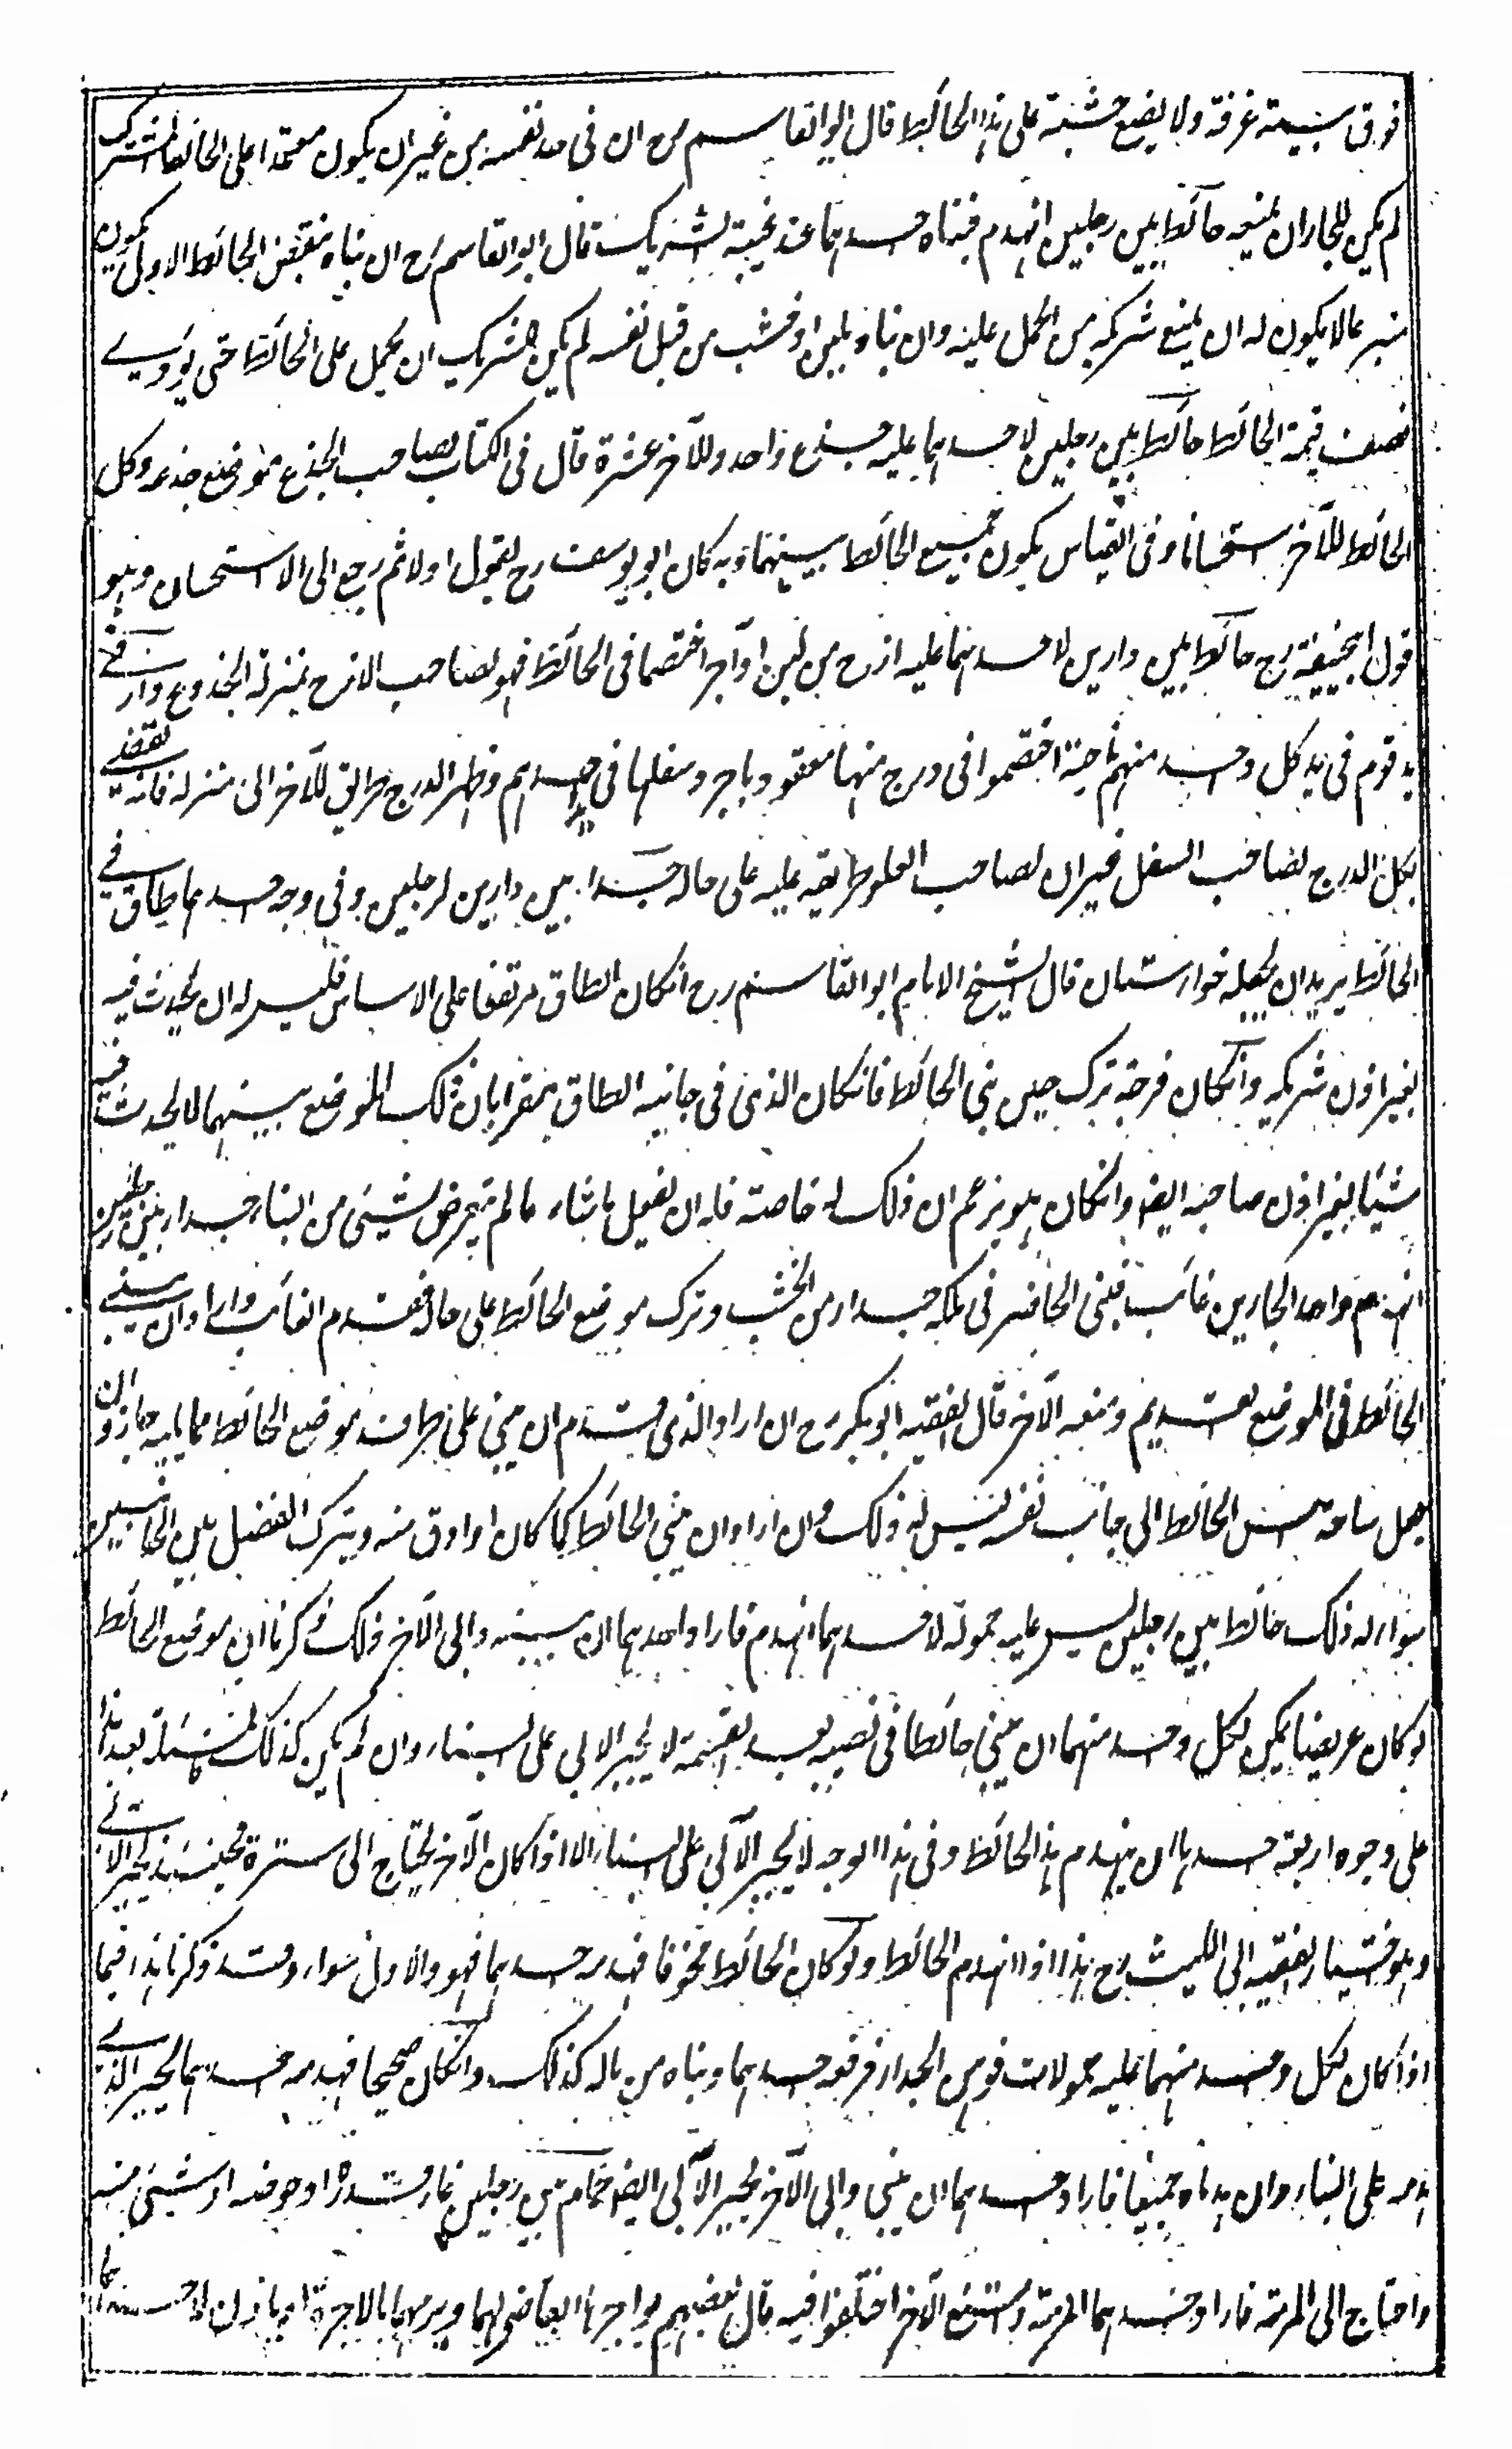 فوق بيته غرفة ولا يضع خشبة على هذا الحائط قال ابو القاسم رح ان بنى فى حد نفسه من غير ان يكون معتمدا على الحائط المشترك
لم يكن للجار ان يمنعه حائط بين رجلين انهدم فبناه احدهما عند غيبة الشريك قال ابو القاسم رح ان بناه بنقض الحائط الاول يكون
متبرعا لا يكون له ان يمنع شريكه من الحمل عليه وان بناه بلبن او خشب من قبل نفسه لم يكن للشريك ان يحمل على الحائط حتى يؤدي
نصف قيمة الحائط حائط بين رجلين لاحدهما عليه جذع واحد وللآخر عشرة قال فى الكتاب لصاحب الجذع موضع جذعه وكل
الحائط للآخر استحسانا وفى القياس يكون جميع الحائط بينهما وبه كان ابو يوسف رح يقول اولا ثم رجع الى الاستحسان وهو
قول ابيحنيفة رح حائط بين دارين لاحدهما عليه ازج من لبن او آجر اختصما فى الحائط فهو لصاحب الازج بمنزلة الجذوع دار في
يد قوم فى يد كل واحد منهم ناحية اختصموا فى درج منها معقود باجر وسفلها فى يد احدهم وظهر الدرج طريق للآخر الى منزله فانه يقضى
بكل الدرج لصاحب السفل غير ان لصاحب العلو طريقه عليه على حاله جدار بين دارين لرجلين وفى وجه احدهما طاق في
الحائط يريد ان يجعله خوارستان قال الشيخ الامام ابو القاسم رح انكان الطاق مرتفعا على الاساس فليس له ان يحدث فيه
بغير اذن شريكه وانكان فرجة ترك حين بنى الحائط فانكان الذى فى جانبه الطاق مقرا بان ذلك الموضع بينهما لا يحدث فيه
شيئا بغير اذن صاحبه ايضا وانكان هو يزعم ان ذلك له خاصة فله ان يفعل ما شاء ما لم يتعرض لشيئ من البناء جدار بين رجلين
انهدم واحد الجارين غائب فبنى الحاضر فى ملكه جدار من الخشب وترك موضع الحائط على حاله فقدم الغائب واراد ان يبنى
الحائط فى الموضع القديم ومنعه الآخر قال الفقيه ابو بكر رح ان اراد الذى قدم ان يبنى على طرف موضع الحائط مما يليه جاز وان
جعل ساحة اس الحائط الى جانب نفسه ليس له ذلك وان اراد ان يبنى الحائط كما كان او ادق منه ويترك الفضل بين الجانبين
سواء له ذلك حائط بين رجلين ليس عليه حمولة لاحدهما انهدم فاراد احدهما ان يبنيه وابى الآخر ذلك ذكرنا ان موضع الحائط
لو كان عريضا يمكن لكل واحد منهما ان يبنى حائطا فى نصيبه بعد القسمة لا يجبر الابى على البناء وان لم يكن كذلك المسئلة بعد هذا
على وجوه اربعة احدها ان ينهدم هذا الحائط وفى هذا الوجه لا يجبر الآبى على البناء الا اذا كان الآخر يحتاج الى سترة فحينئذ يجبر الآبى
وهو اختيار الفقيه ابى الليث رح هذا اذا انهدم الحائط ولو كان الحائط مخوفا فهدمه احدهما فهو والاول سواء وقد ذكرنا هذا فيما
اذا كان لكل واحد منهما عليه حمولات فوهن الجدار فرفعه احدهما وبناه من ماله كذلك وانكان صحيحا فهدمه احدهما يجبر الذى
هدمه على البناء وان هدماه جميعا فاراد احدهما ان يبنى وابى الآخر يجبر الآبى ايضا حمام بين رجلين غار قدره او حوضه او شيئ منه
واحتاج الى المرمة فاراد احدهما المرمة وامتنع الآخر اختلفوا فيه قال بعضهم يواجرها القاضى لهما ويرمها بالاجرة او ياذن لاحدهما